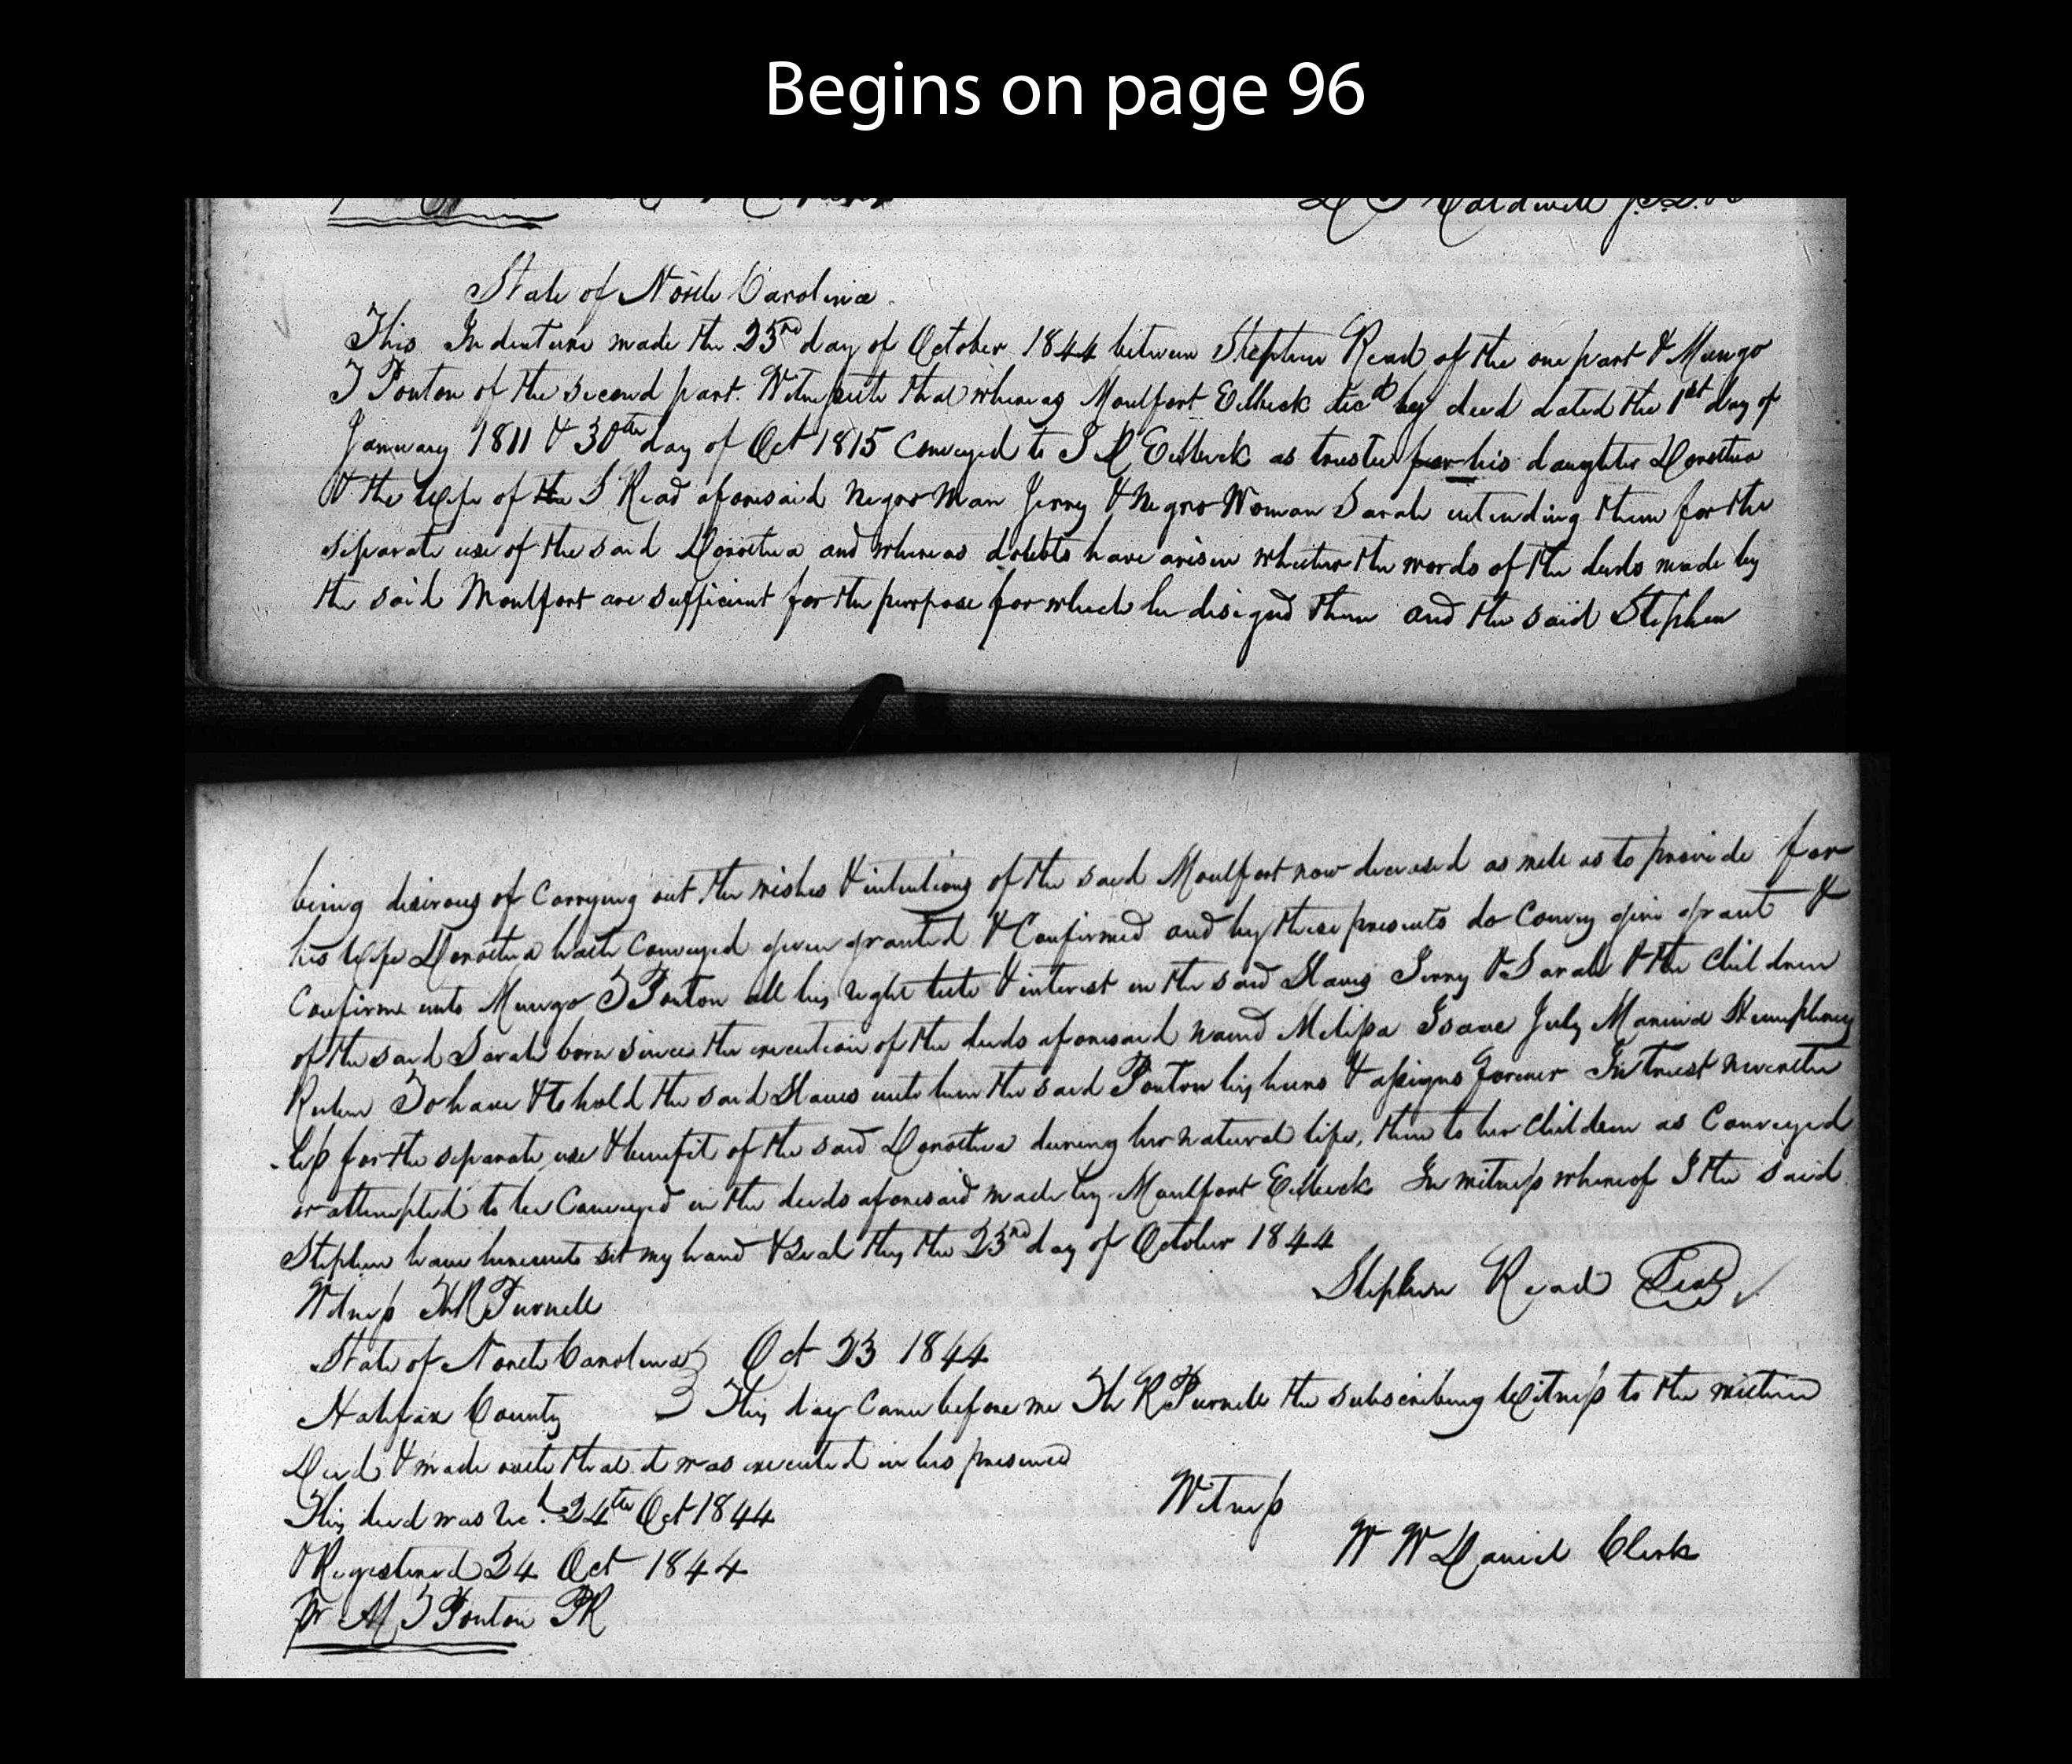 Begins on page 96
Caldwell
State of North Carolina
This Indenture made the 23rd day of October 1844 between Stephen Read of the one part & Mungo
T Ponton of the second part. Witnesseth that whereas Moulfort Eelbeck decd by deed dated the 1st day of
January 1811 & 30th day of Oct 1815 Conveyed to J R Eelbeck as trustee for his daughter Dorothea
& the wife of the S Read aforesaid negro man Jerry & Negro Woman Sarah intending them for the
separate use of the said Dorothea and whereas doubts have arisen whether the words of the deeds made by
the said Moulfort are sufficient for the purpose for which he disigned them and the said Stephen
being desirous of carrying out the wishes & intentions of the said Moulfort now deceased as well as to provide for
his wife Dorothea hath conveyed given granted & Confirmed and by these presents do Convey give grant &
Confirm unto Mungo T Ponton all his right title & interest in the said Slaves Jerry & Sarah & the Children
of the said Sarah born since the execution of the deeds aforesaid named Melissa Isaac July Humphrey
Reuben To have & to hold the said Slaves unto him the said Ponton his heirs & assigns forever In trust neverthe
-less for the separate use & benefit of the said Dorothea during her natural life, then to her Children as Conveyed
or attempted to be Conveyed in the deeds aforesaid made by Moulfort Eelbeck In witness whereof I the said
Stephen have hereunto set my hand & seal this the 23rd day of October 1844
Witness Th R Purnell
Stephen Read Seal
State of North Carolina } Oct 23 1844
Halifax County } This day came before me Th R Purnell the subscribing Witness to the within
Deed & made oath that it was executed in his presence
Witness
This deed was recd. 24th Oct 1844
W W Daniel Clerk
& Registered 24 Oct 1844
pr M T Ponton PR